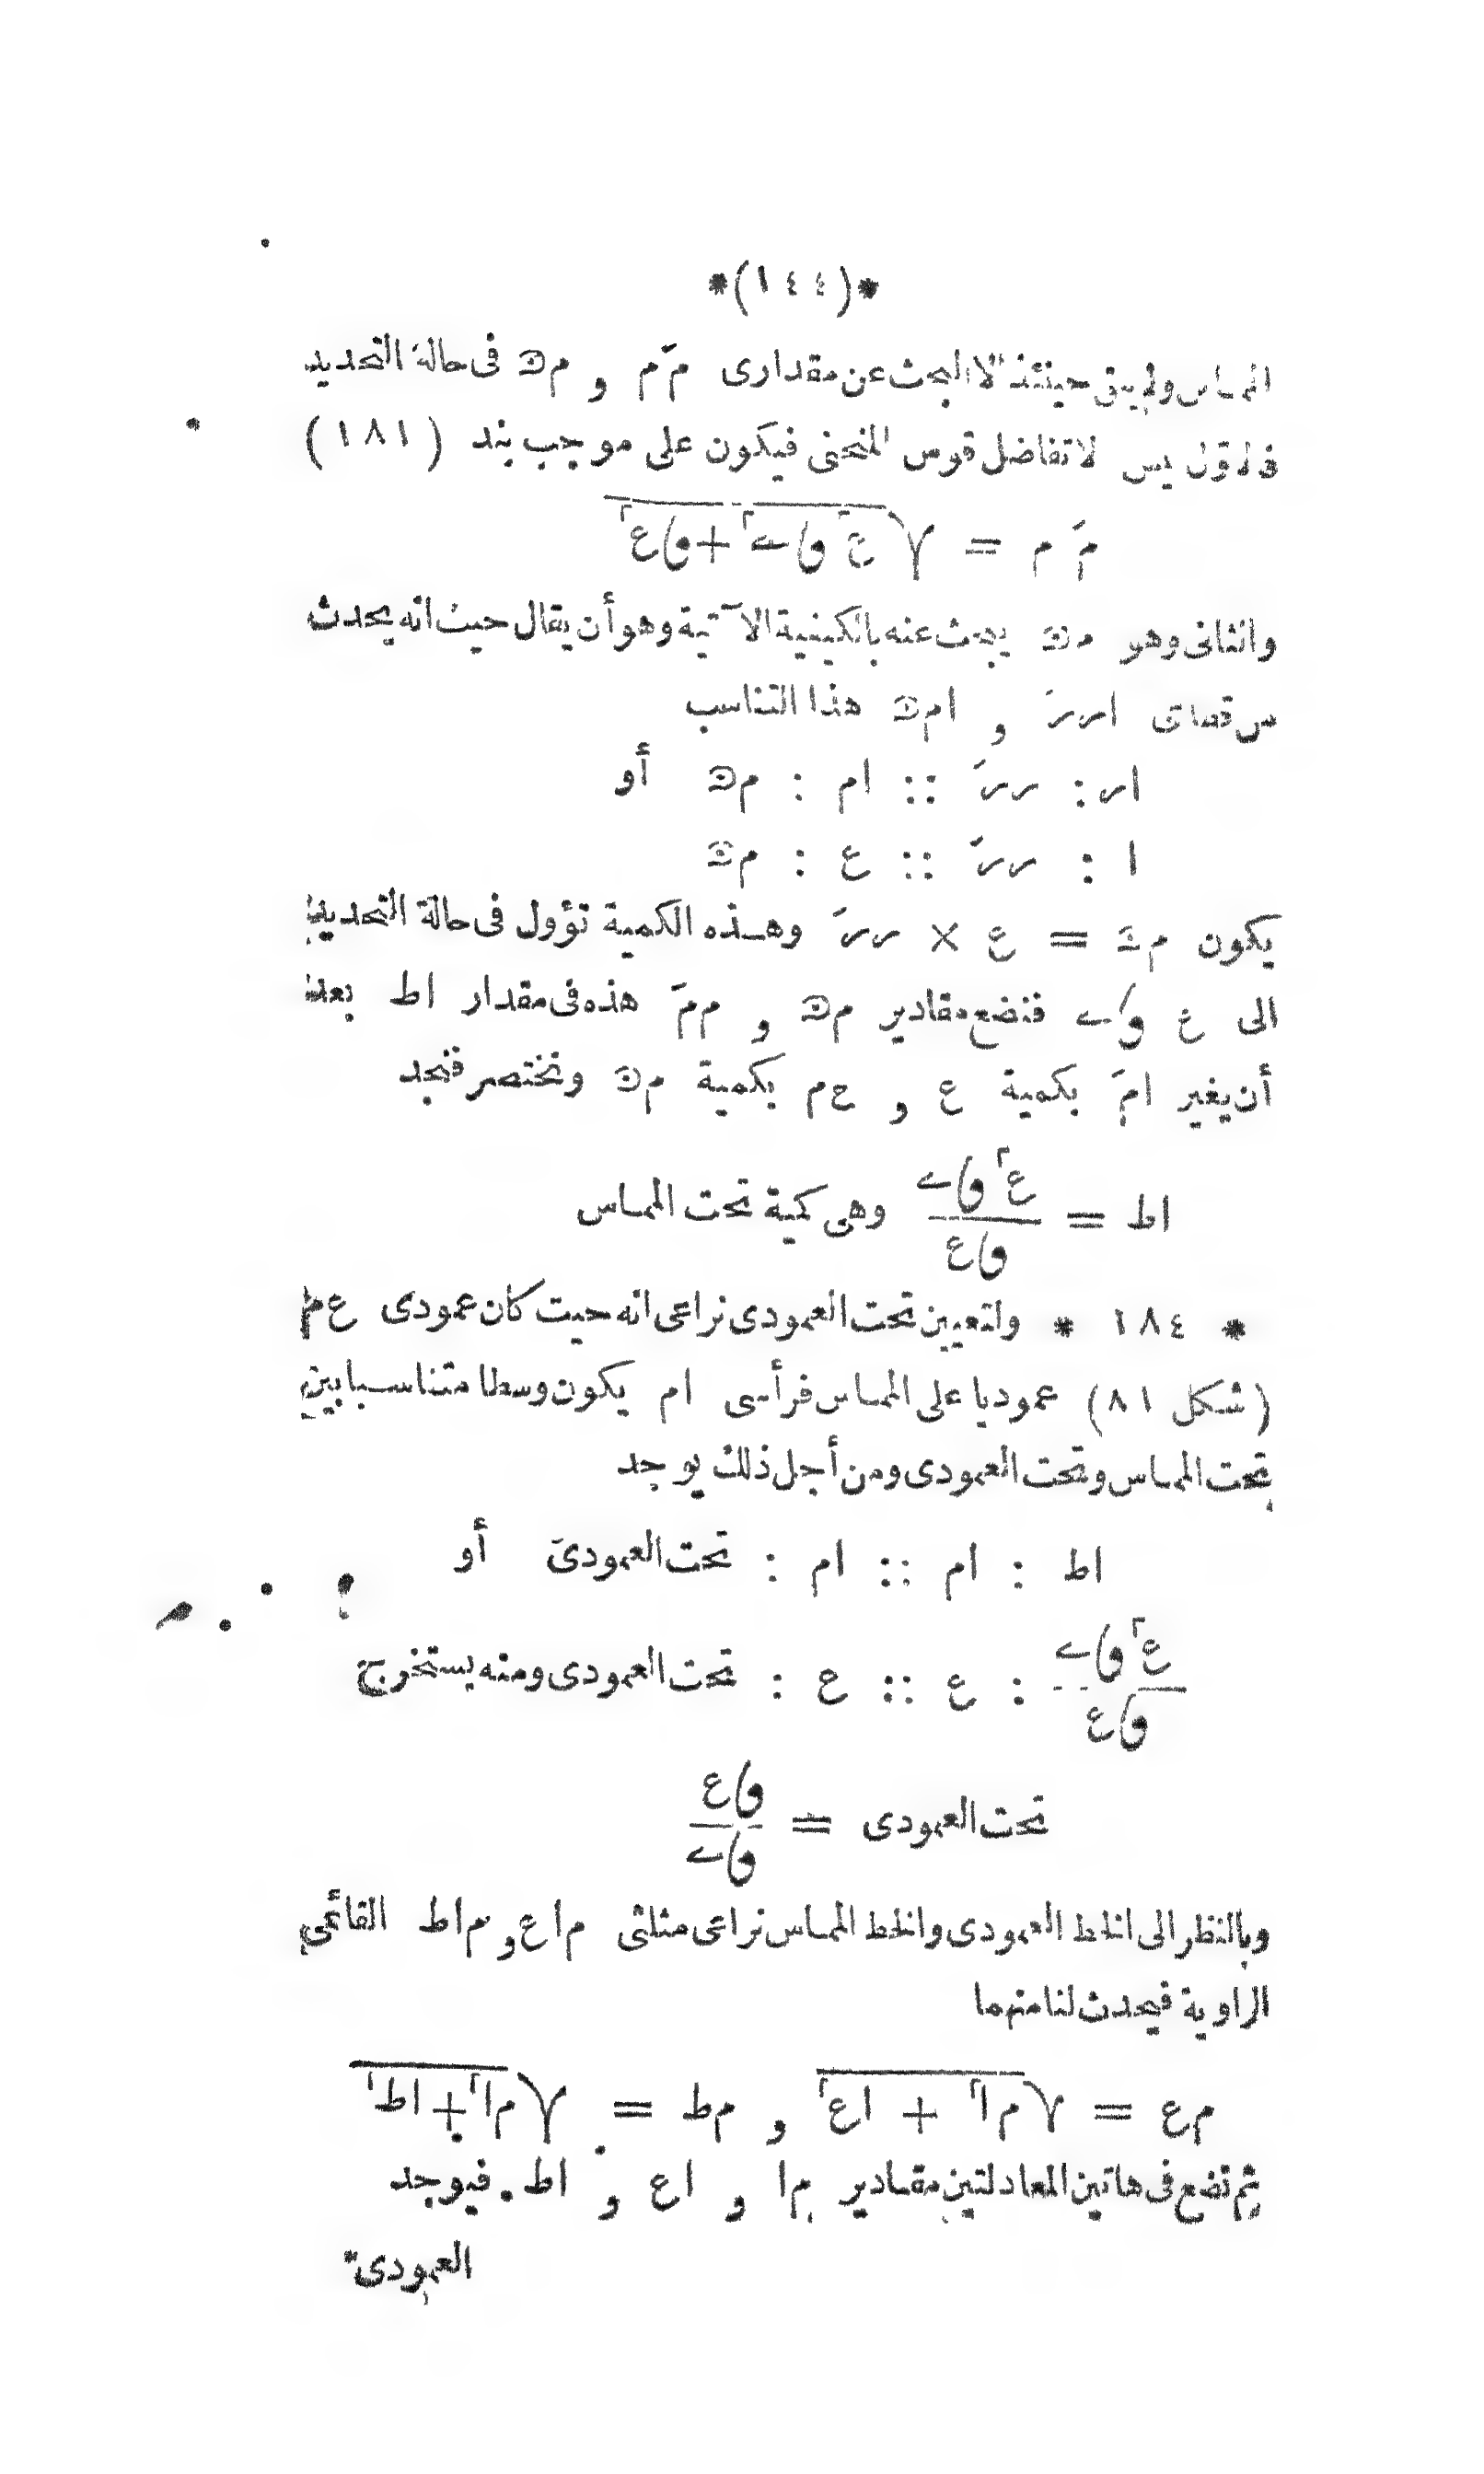 *(١٤٤)*
المماس ولم يبق حينئذ الا البحث عن مقدارى مَ م و م ن فى حالة التحديد
فالاول ليس الا تفاضل قوس المنحنى فيكون على موجب بند (١٨١)
مَ م = √(ع٢ ۍى٢ + ۍع٢)
والثانى وهو م ن يبحث عنه بالكيفية الآتية وهو أن يقال حيث انه يحدث
من قطاعى ا ر رَ و ا م ن هذا التناسب
ا ر : ر رَ :: ا م : م ن أو
ا : ر رَ :: ع : م ن
يكون م ن = ع × ر رَ وهـذه الكمية تؤول فى حالة التحديد
الى ع ۍى فنضع مقادير م ن و م مَ هذه فى مقدار ا ط بعد
أن يغير ا مَ بكمية ع و ح م بكمية م ن ونختصر فنجد
ا ط = ع٢ ۍى / ۍع وهى كمية تحت المماس
* ١٨٤ * ولتعيين تحت العمودى نراعى انه حيث كان عمودى ع م
(شكل ٨١) عموديا على المماس فرأسى ا م يكون وسطا متناسبا بين
تحت المماس وتحت العمودى ومن أجل ذلك يوجد
ا ط : ا م :: ا م : تحت العمودى أو
ع٢ ۍى / ۍع : ع :: ع : تحت العمودى ومنه يستخرج
تحت العمودى = ۍع / ۍى
وبالنظر الى الخط العمودى والخط المماس نراعى مثلثى م ا ع و م ا ط القائمى
الزاوية فيحدث لنا منهما
م ع = √(م ا٢ + ا ع٢) و م ط = √(م ا٢ + ا ط٢)
ثم نضع فى هاتين المعادلتين مقادير م ا و ا ع و ا ط فيوجد
العمودى